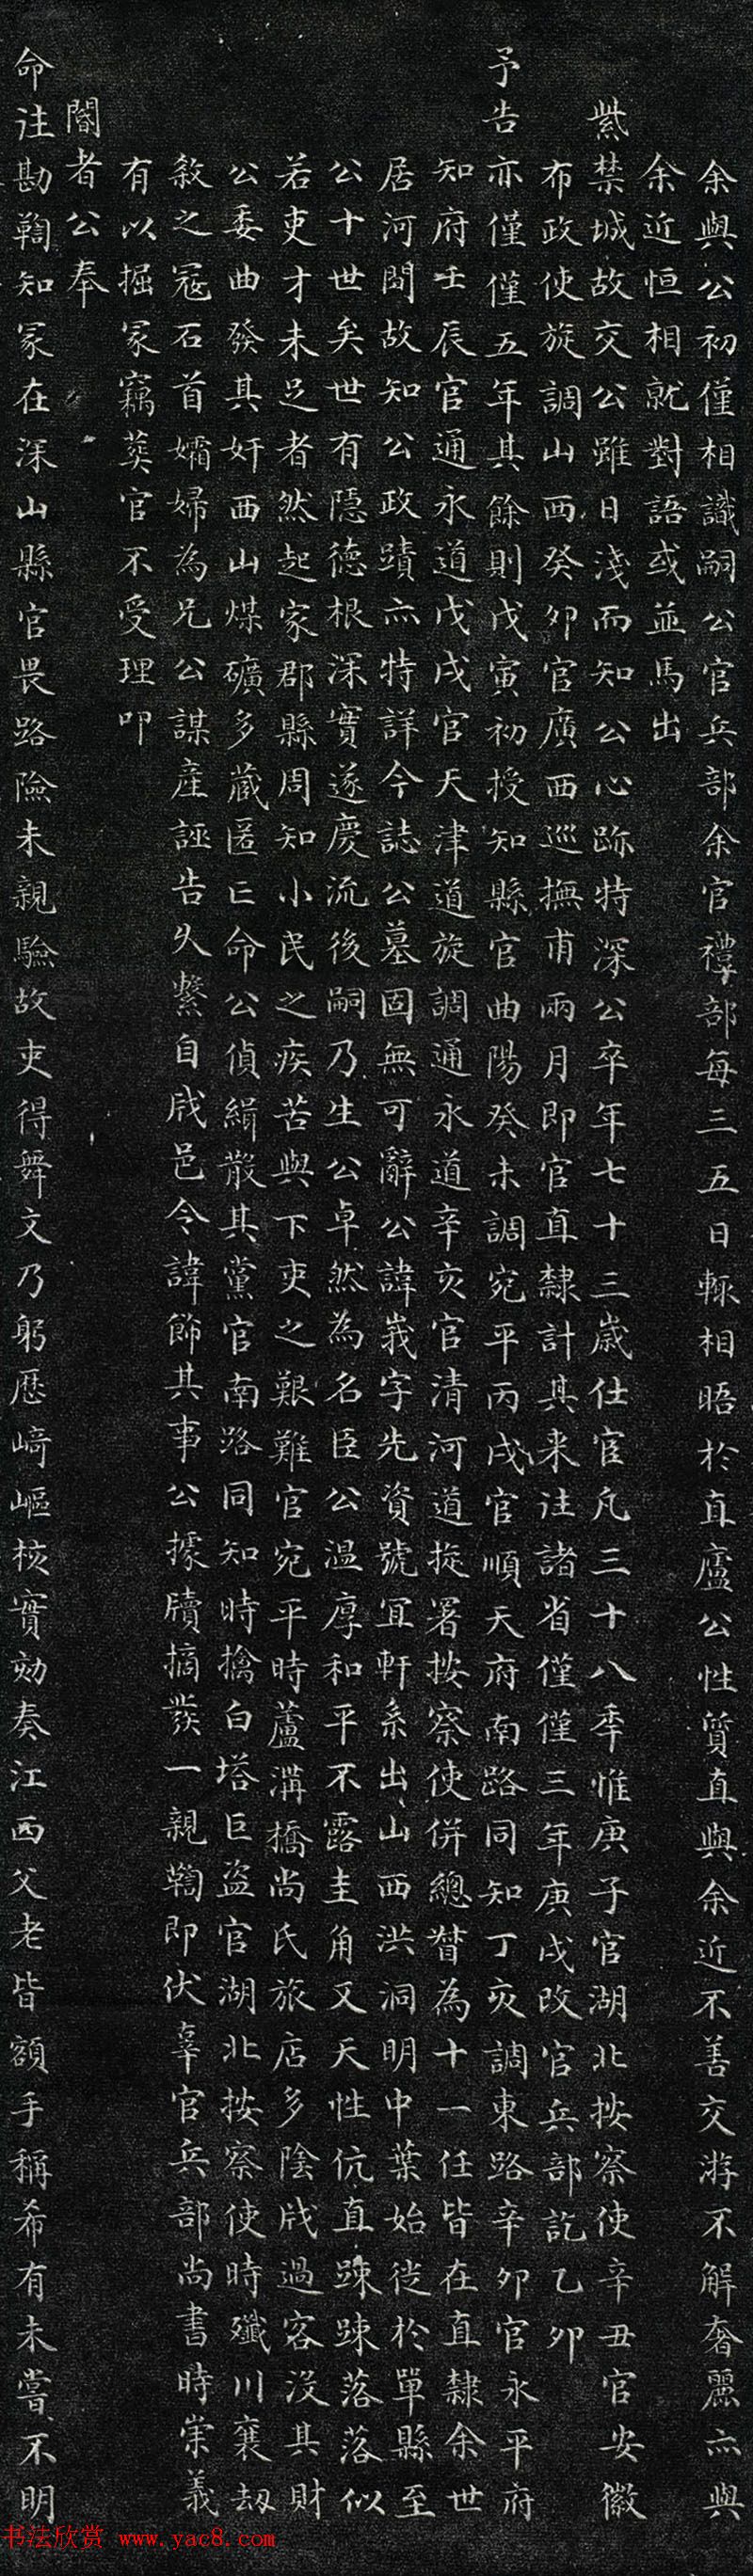 余與公初僅相識嗣公官兵部余官禮部每三五日輒相晤於直廬公性質直與余近不善交游不解奢麗亦與
余近恒相就對語或並馬出
紫禁城故交公雖日淺而知公心跡特深公卒年七十三歲仕宦凡三十八年惟庚子官湖北按察使辛丑官安徽
布政使旋調山西癸卯官廣西巡撫甫兩月即官直隸計其来往諸省僅僅三年庚戌改官兵部訖乙卯
予告亦僅僅五年其餘則戊寅初授知縣官曲陽癸未調宛平丙戌官順天府南路同知丁亥調東路辛卯官永平府
知府壬辰官通永道戊戌官天津道旋調通永道辛亥官清河道旋署按察使併總督為十一任皆在直隸余世
居河間故知公政蹟亦特詳今誌公墓固無可辭公諱峩字先資號宜軒系出山西洪洞明中葉始徙於單縣至
公十世矣世有隱德根深實遂慶流後嗣乃生公卓然為名臣公溫厚和平不露圭角又天性伉直踈踈落落似
若吏才未足者然起家郡縣周知小民之疾苦與下吏之艱難官宛平時蘆溝橋尚氏旅店多陰戕過客沒其財
公委曲發其奸西山煤礦多藏匿亡命公偵緝散其黨官南路同知時擒白塔巨盜官湖北按察使時殲川襄劫
敘之冠石首孀婦為兄公謀產誣告久繫自戕邑令諱飾其事公據牘摘發一親鞫即伏辜官兵部尚書時崇義
有以掘冢竊葬官不受理叩
閽者公奉
命往勘鞫知冢在深山縣官畏路險未親驗故吏得舞文乃躬歷崎嶇核實劾奏江西父老皆額手稱希有未嘗不明
书法欣赏 www.yac8.com